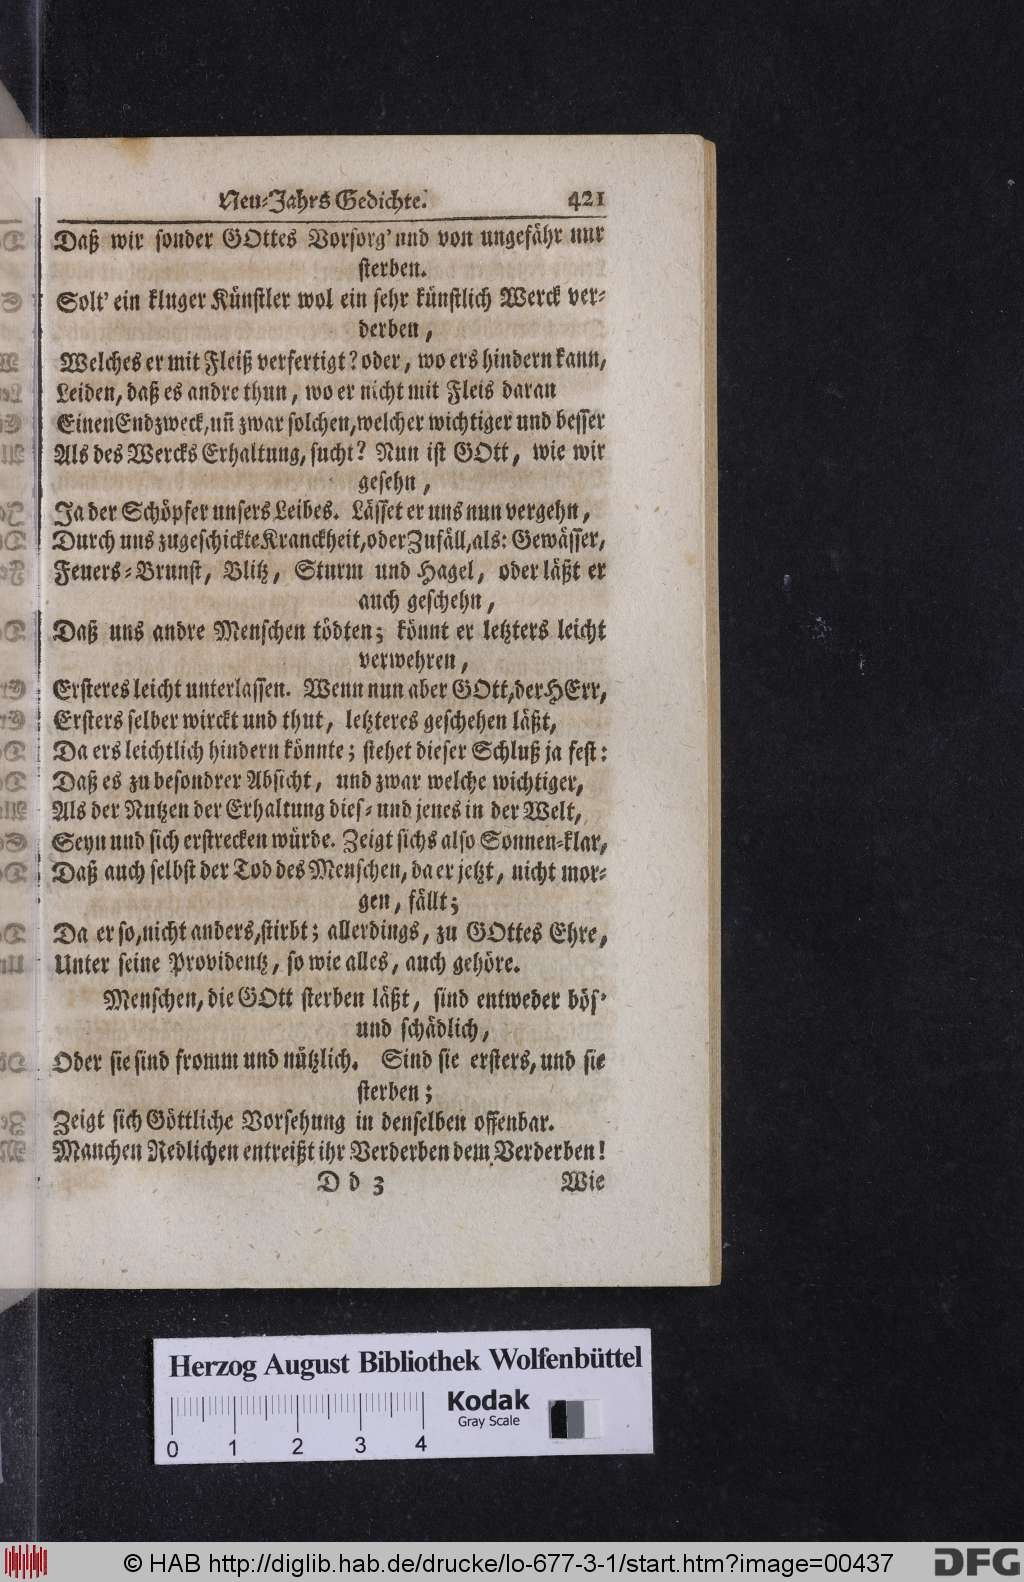 Neu-Jahrs Gedichte. 421
Daß wir sonder GOttes Vorsorg' und von ungefähr nur
sterben.
Solt' ein kluger Künstler wol ein sehr künstlich Werck ver-
derben,
Welches er mit Fleiß verfertigt? oder, wo ers hindern kann,
Leiden, daß es andre thun, wo er nicht mit Fleis daran
Einen Endzweck, uñ zwar solchen, welcher wichtiger und besser
Als des Wercks Erhaltung, sucht? Nun ist GOtt, wie wir
gesehn,
Ja der Schöpfer unsers Leibes. Lässet er uns nun vergehn,
Durch uns zugeschickte Kranckheit, oder Zufäll, als: Gewässer,
Feuers-Brunst, Blitz, Sturm und Hagel, oder läßt er
auch geschehn,
Daß uns andre Menschen tödten; könnt er letzters leicht
verwehren,
Ersteres leicht unterlassen. Wenn nun aber GOtt, der HErr,
Ersters selber wirckt und thut, letzteres geschehen läßt,
Da ers leichtlich hindern könnte; stehet dieser Schluß ja fest:
Daß es zu besondrer Absicht, und zwar welche wichtiger,
Als der Nutzen der Erhaltung dies- und jenes in der Welt,
Seyn und sich erstrecken würde. Zeigt sichs also Sonnen-klar,
Daß auch selbst der Tod des Menschen, da er jetzt, nicht mor-
gen, fällt;
Da er so, nicht anders, stirbt; allerdings, zu GOttes Ehre,
Unter seine Providentz, so wie alles, auch gehöre.
Menschen, die GOtt sterben läßt, sind entweder bös'
und schädlich,
Oder sie sind fromm und nützlich. Sind sie ersters, und sie
sterben;
Zeigt sich Göttliche Vorsehung in denselben offenbar.
Manchen Redlichen entreißt ihr Verderben dem Verderben!
D d 3 Wie
Herzog August Bibliothek Wolfenbüttel
Kodak
Gray Scale
0 1 2 3 4
© HAB http://diglib.hab.de/drucke/lo-677-3-1/start.htm?image=00437
DFG